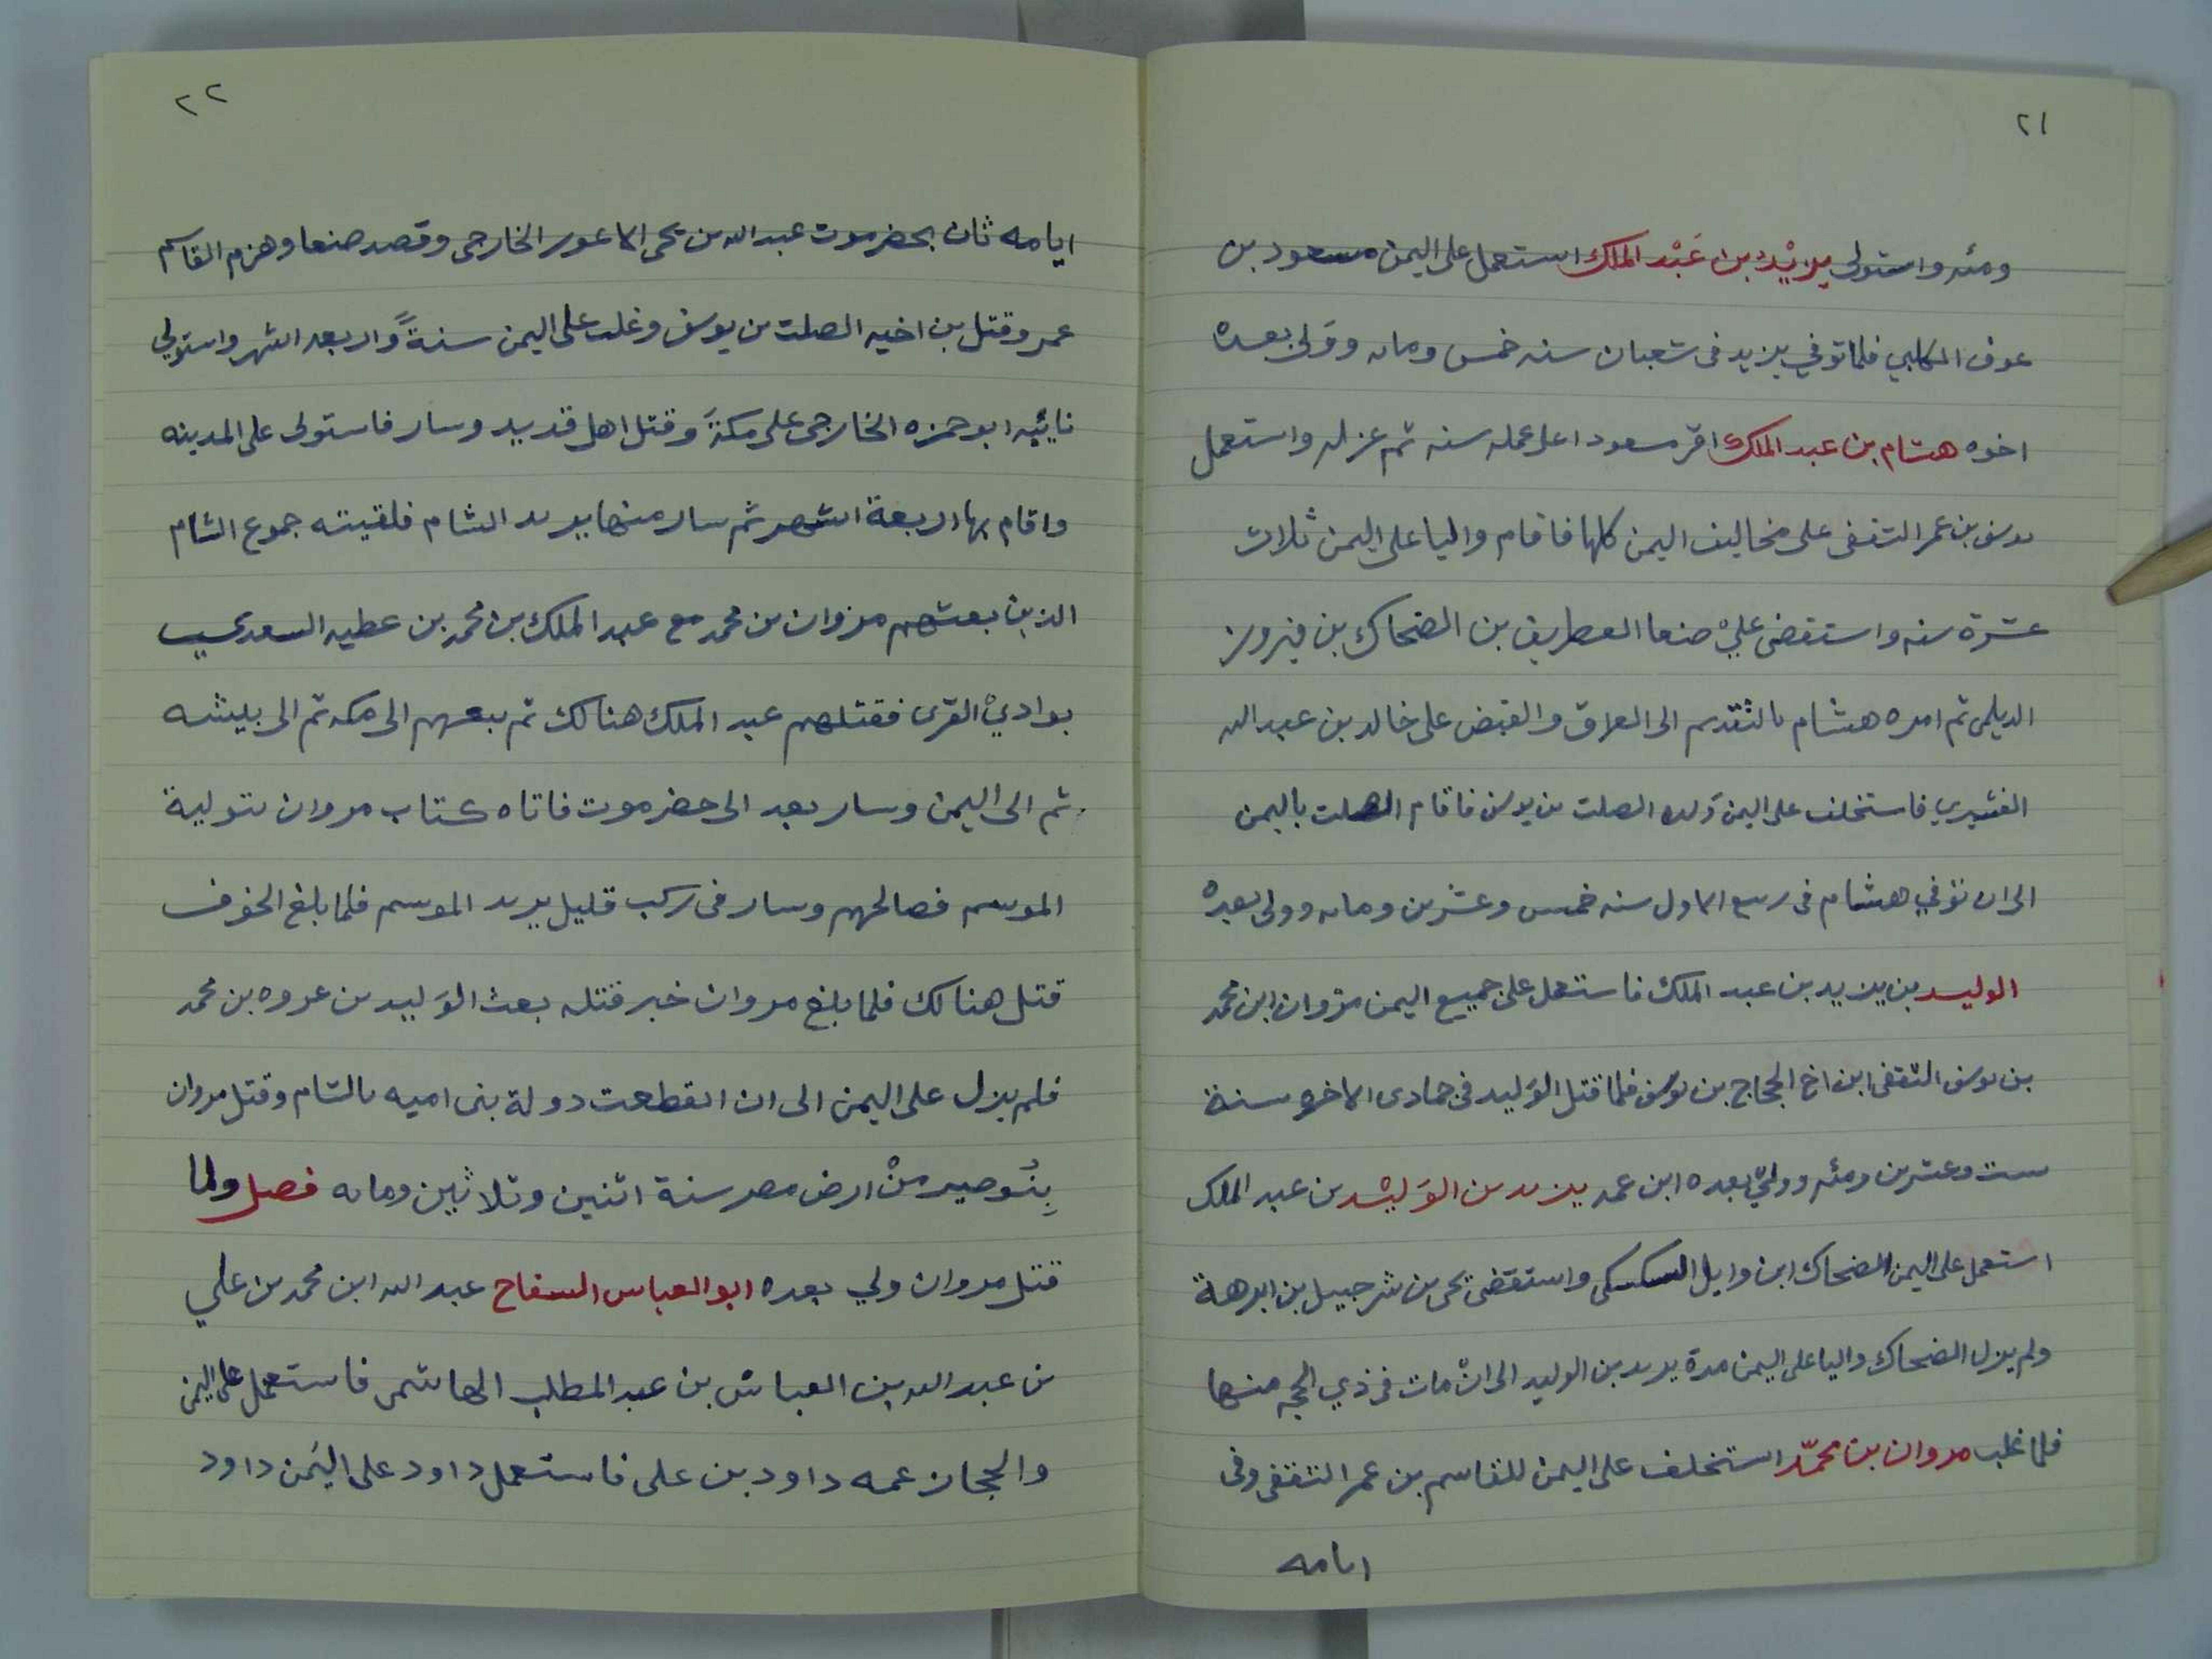 ٢١
ومئه واستولى يزيْد بن عَبْد الملك استعمل على اليمن مسعود بن
عوف الكلبي فلما توفي يزيد فى شعبان سنه خمس ومايه ووَلى بعده
اخوه هشام بن عبد الملك اقر مسعودا على عمله سنه ثم عزله واستعمل
يوسف بن عمر الثقفى على مخاليف اليمن كلها فاقام واليا على اليمن ثلاث
عشرة سنه واستقضى علىْ صنعا الغطريف بن الضحاك بن فيروز
الديلمى ثم امره هشام بالتقدم الى العراق والقبض على خالد بن عبد الله
القشيري فاستخلف على اليمن وَلده الصلت بن يوسف فاقام الصلت باليمن
الى ان توفي هشام فى ربيع الاول سنه خمس وعشرين ومايه وولى بعده
الوليد بن يزيد بن عبد الملك فاستعمل على جميع اليمن مرْوان ابن محمد
بن يوسف الثقفى ابن اخ الحجاج بن يوسف فلما قتل الوَليد فى جمادى الاخره سنة
ست وعشرين ومئه ووليّ بعده ابن عمه يزيد بن الوَليْد بن عبد الملك
استعمل على اليمن الضحاك ابن وايل السكسكى واستقضى يحى بن شرحبيل بن ابرهة
ولم يزل الضحاك واليا على اليمن مدة يزيد بن الوليد الى انْ مات فى ذي الحجه منها
فلما غلب مروان بن محمّد استخلف على اليمن للقاسم بن عمر الثقفى وفى
ايامه
٢٢
ايامه ثان بحضرموت عبد الله بن يحى الاعور الخارجى وقصد صنعا وهزم القاسم
عمر وقتل بن اخيه الصلت بن يوسف وغلب على اليمن سنةً واربعه اشهر واستولي
نائبه ابو حمزه الخارجى على مكةَ وقتل اهل قديد وسار فاستولى على المدينه
واقام بها اربعة اشهر ثم سار منها يريد الشام فلقيته جموع الشام
الذين بعثهم مروان بن محمد مع عبد الملك بن محمد بن عطيه السعدي
بواديْ القرى فقتلهم عبد الملك هنالك ثم تبعهم الى مكه ثم الى بيشه
ثم الى اليمن وسار بعد الى حضرموت فاتاه كتاب مروان بتولية
الموسم فصالحهم وسار فى ركب قليل يريد الموسم فلما بلغ الخوف
قتل هنالك فلما بلغ مروان خبر قتله بعث الوَليد بن عروه بن محمد
فلم يزل على اليمن الى ان انقطعت دولة بنى اميه بالشام وقتل مروان
بِبُوصير منْ ارض مصر سنة اثنين وثلاثين ومايه فصل ولما
قتل مروان ولي بعده ابو العباس السفاح عبد الله ابن محمد بن علي
بن عبد الله بن العباسْ بن عبد المطلب الهاشمى فاستعمل على اليمن
والحجاز عمه داود بن على فاستعمل داود على اليَمن داود